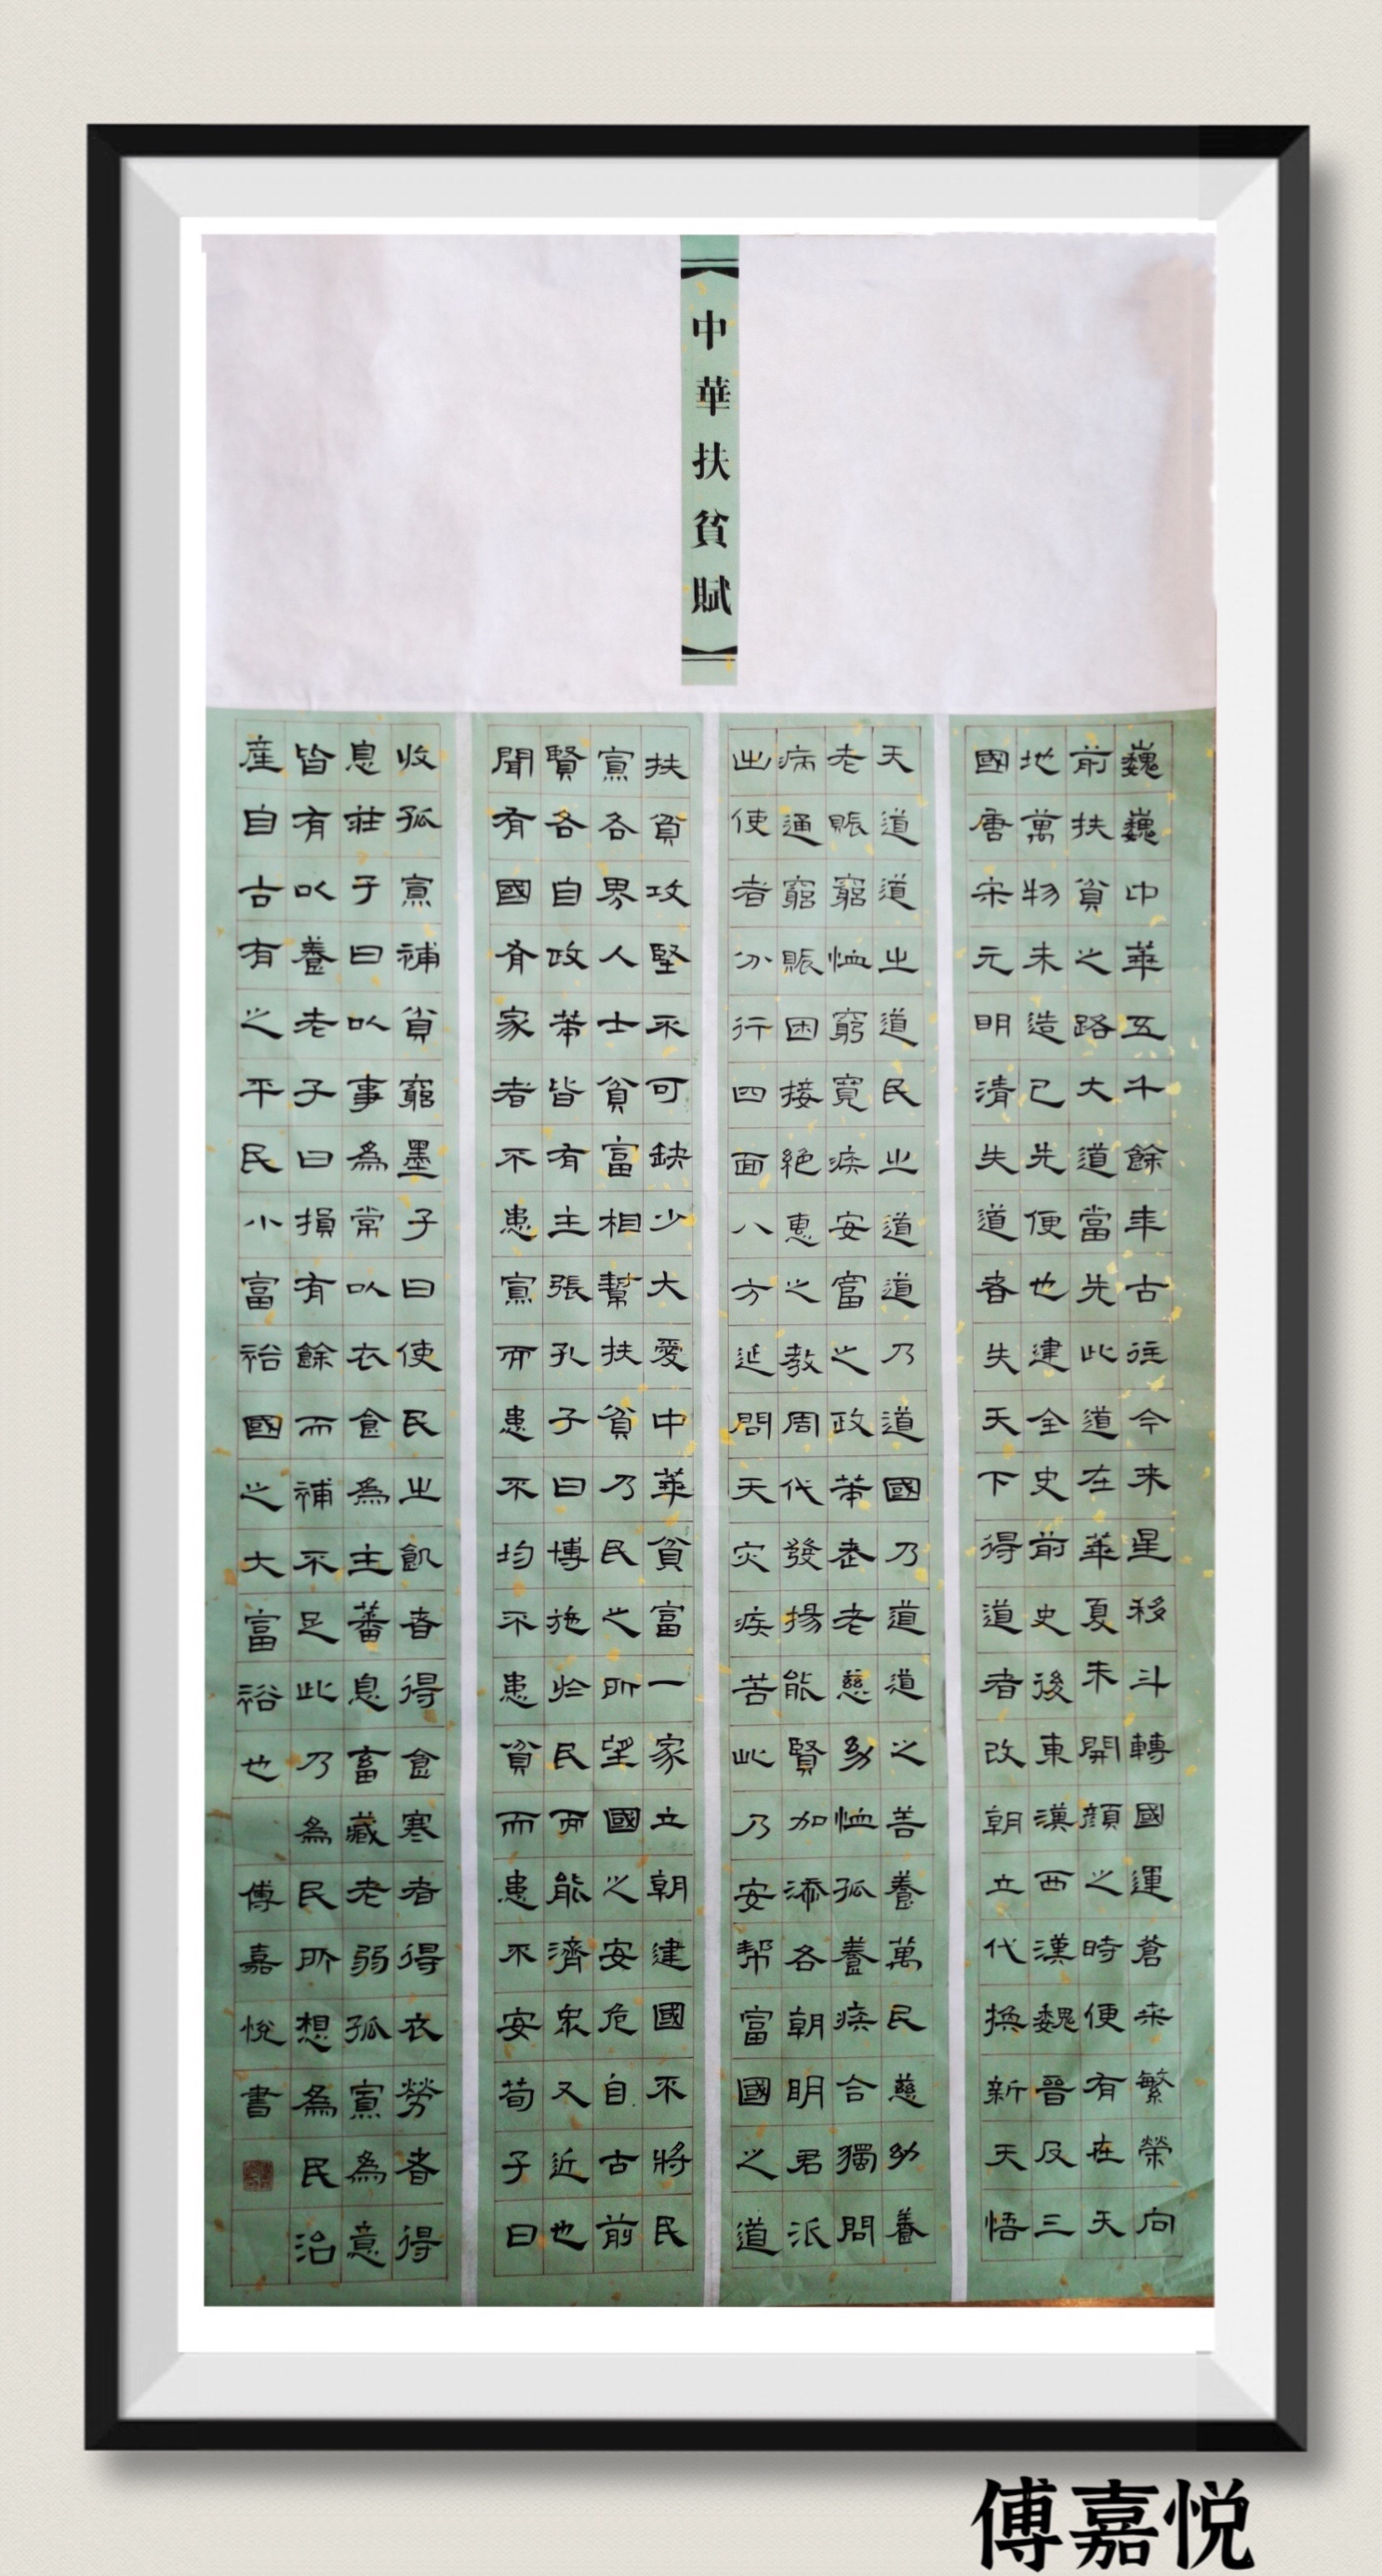 中華扶貧賦
巍巍中華五千餘年古往今来星移斗轉國運蒼桒繁榮向
前扶貧之路大道當先此道在華夏未開顔之時便有在天
地萬物未造已先便也建全史前史後東漢西漢魏晉及三
國唐宋元明清失道者失天下得道者改朝立代換新天悟
天道道之道民之道道乃道國乃道道之善養萬民慈幼養
老賑窮恤窮寬疾安富之政荣老老慈幼恤孤養疾合獨問
病通窮賑困接絶惠之教周代發揚能賢加添各朝明君派
出使者分行四面八方延問天灾疾苦此乃安帮富國之道
扶貧攻堅不可缺少大愛中華貧富一家立朝建國不將民
寡各界人士貧富相幫扶貧乃民之所望國之安危自古前
賢各自政荣皆有主張孔子曰博施於民而能濟衆又近也
聞有國有家者不患寡而患不均不患貧而患不安荀子曰
收孤寡補貧窮墨子曰使民之飢者得食寒者得衣勞者得
息莊子曰以事為常以衣食為主蕃息畜藏老弱孤寡為意
皆有以養老子曰損有餘而補不足此乃為民所想為民治
産自古有之平民小富裕國之大富裕也 傅嘉悅書
傅嘉悦